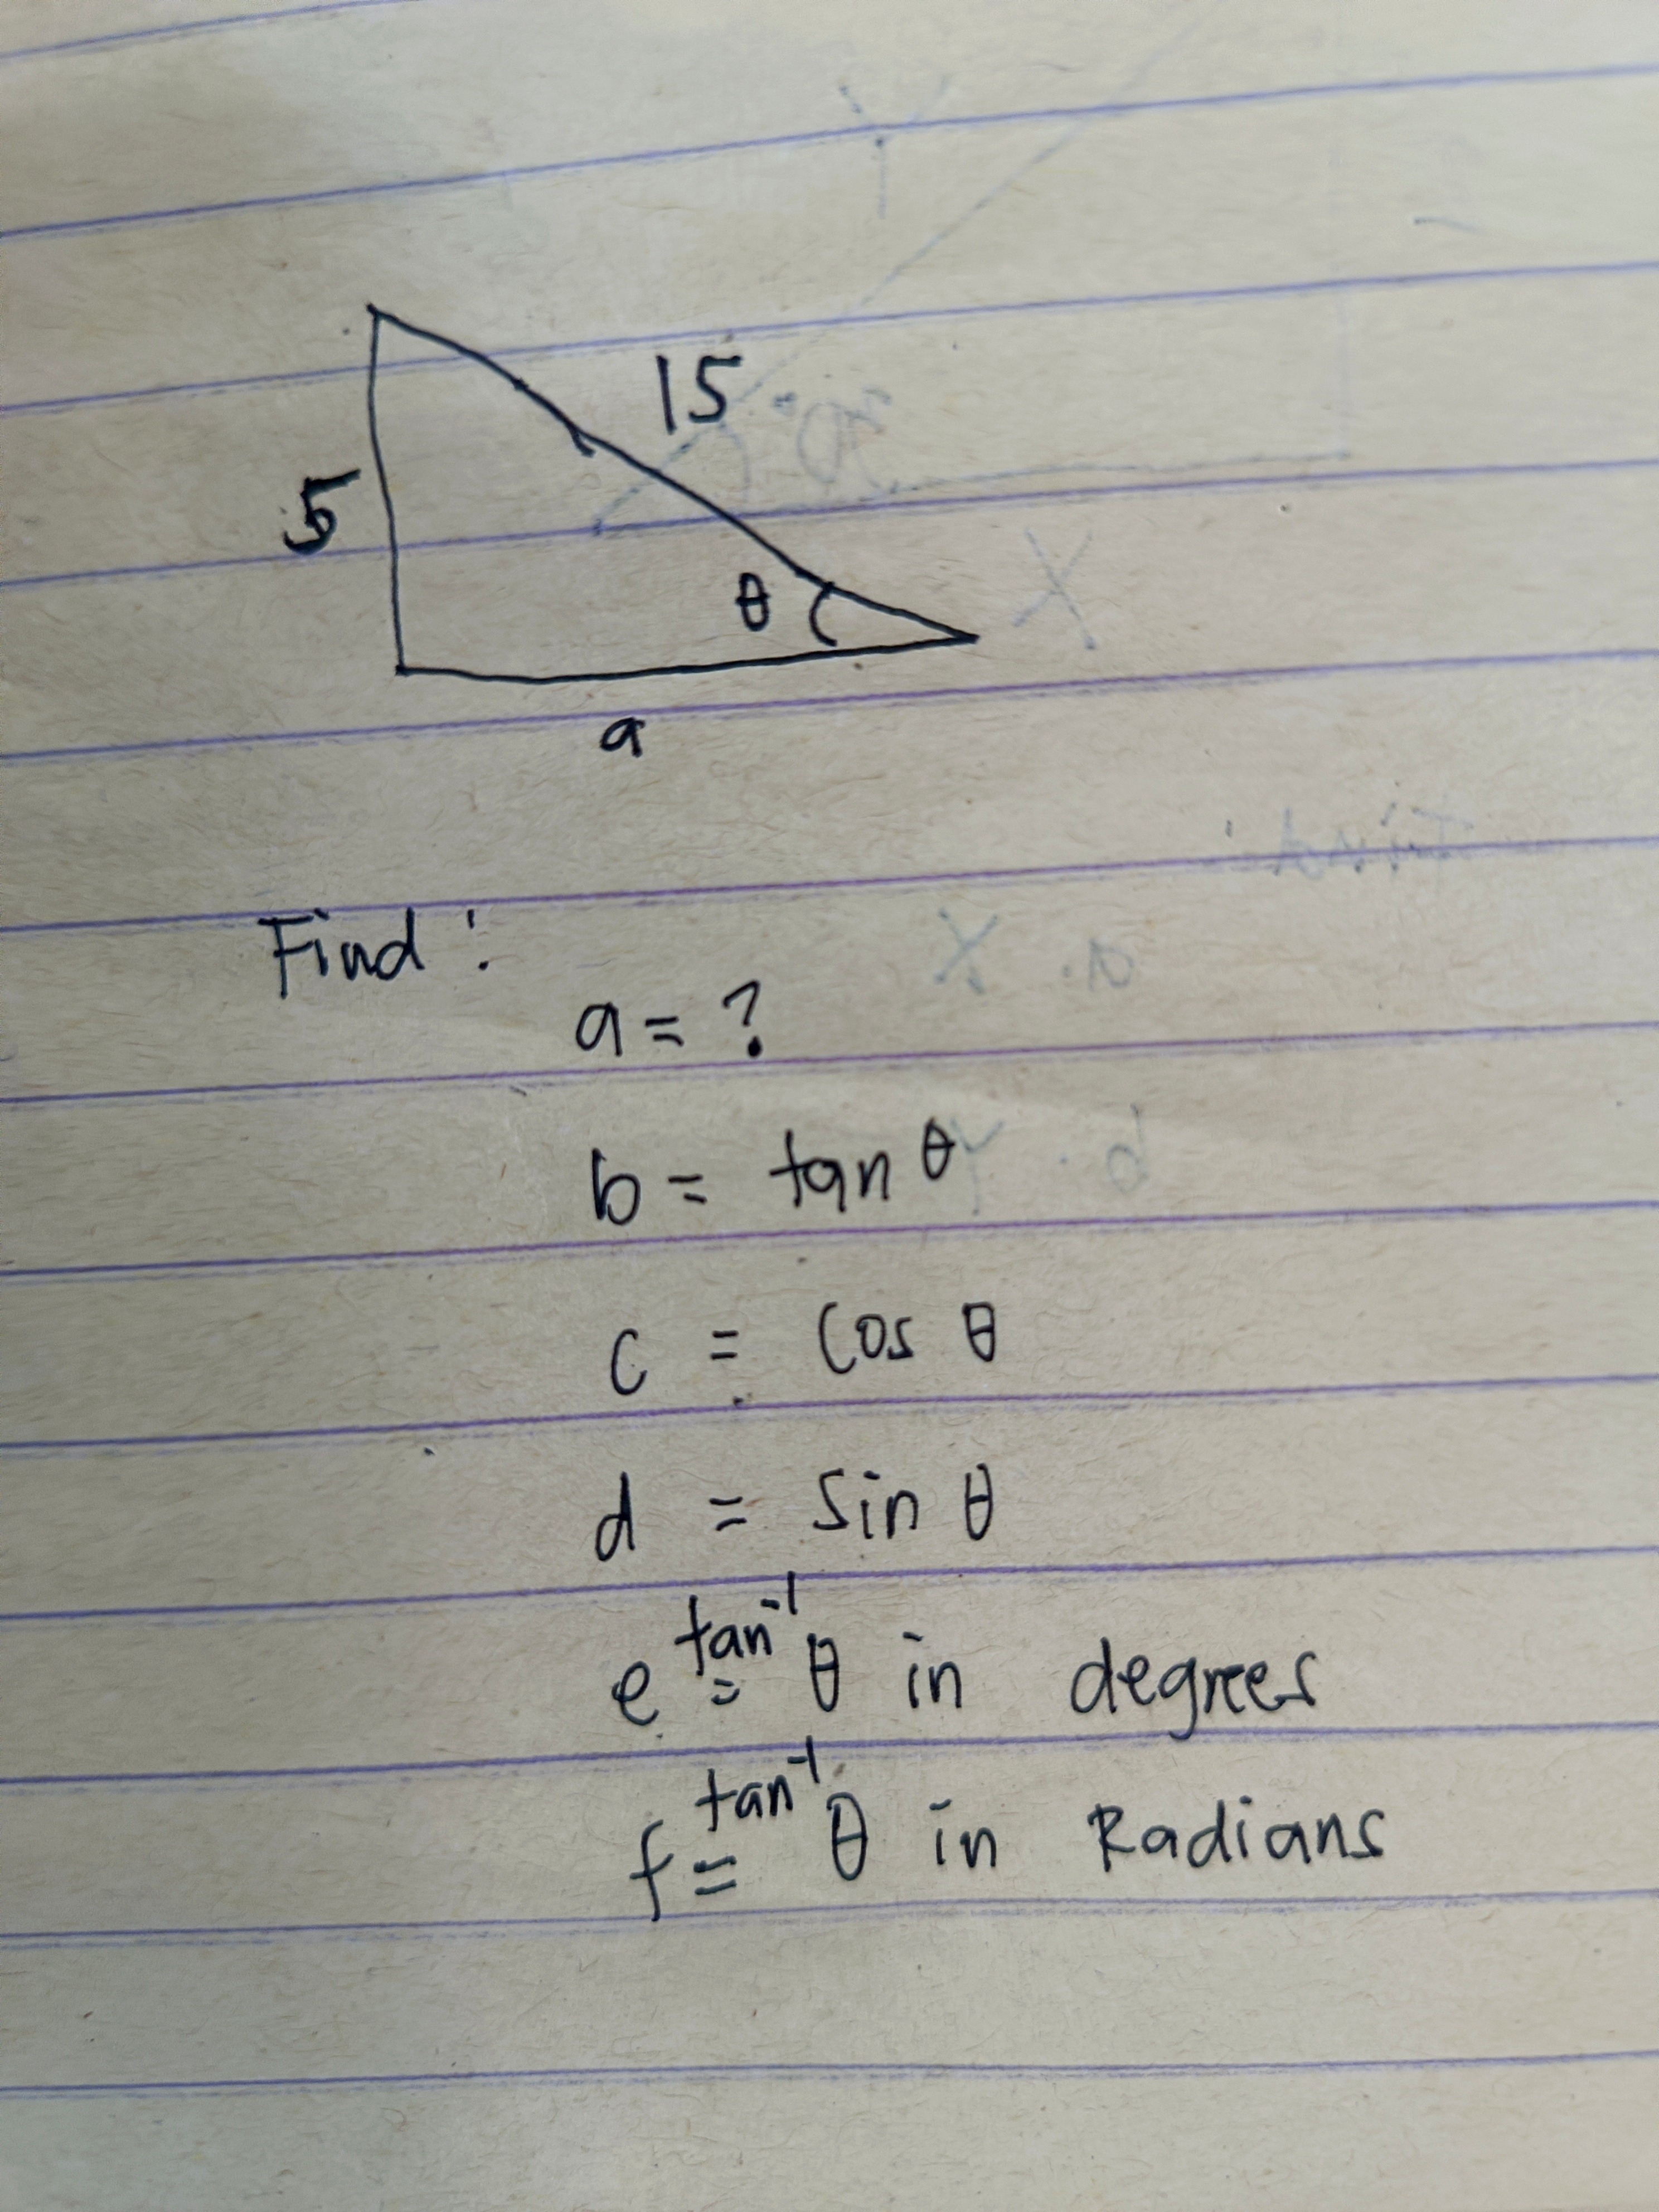 15
5
θ
a
Find :
a = ?
b = tan θ
c = cos θ
d = sin θ
e = tan⁻¹ θ in degrees
f = tan⁻¹ θ in Radians